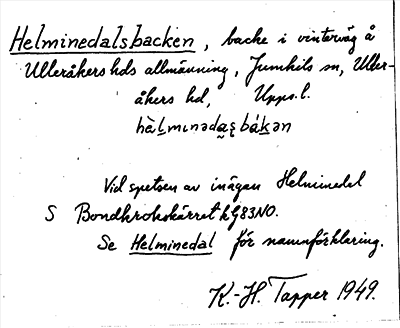 Helminedalsbacken, backe i vinterväg å
Ulleråkers hds allmänning, Jumkils sn, Uller-
åkers hd, Upps. l.
Vid spetsen av inägan Helminedel
S Bondkrokskärret kG83NO.
Se Helminedal för namnförklaring.
K.-H. Tapper 1949.